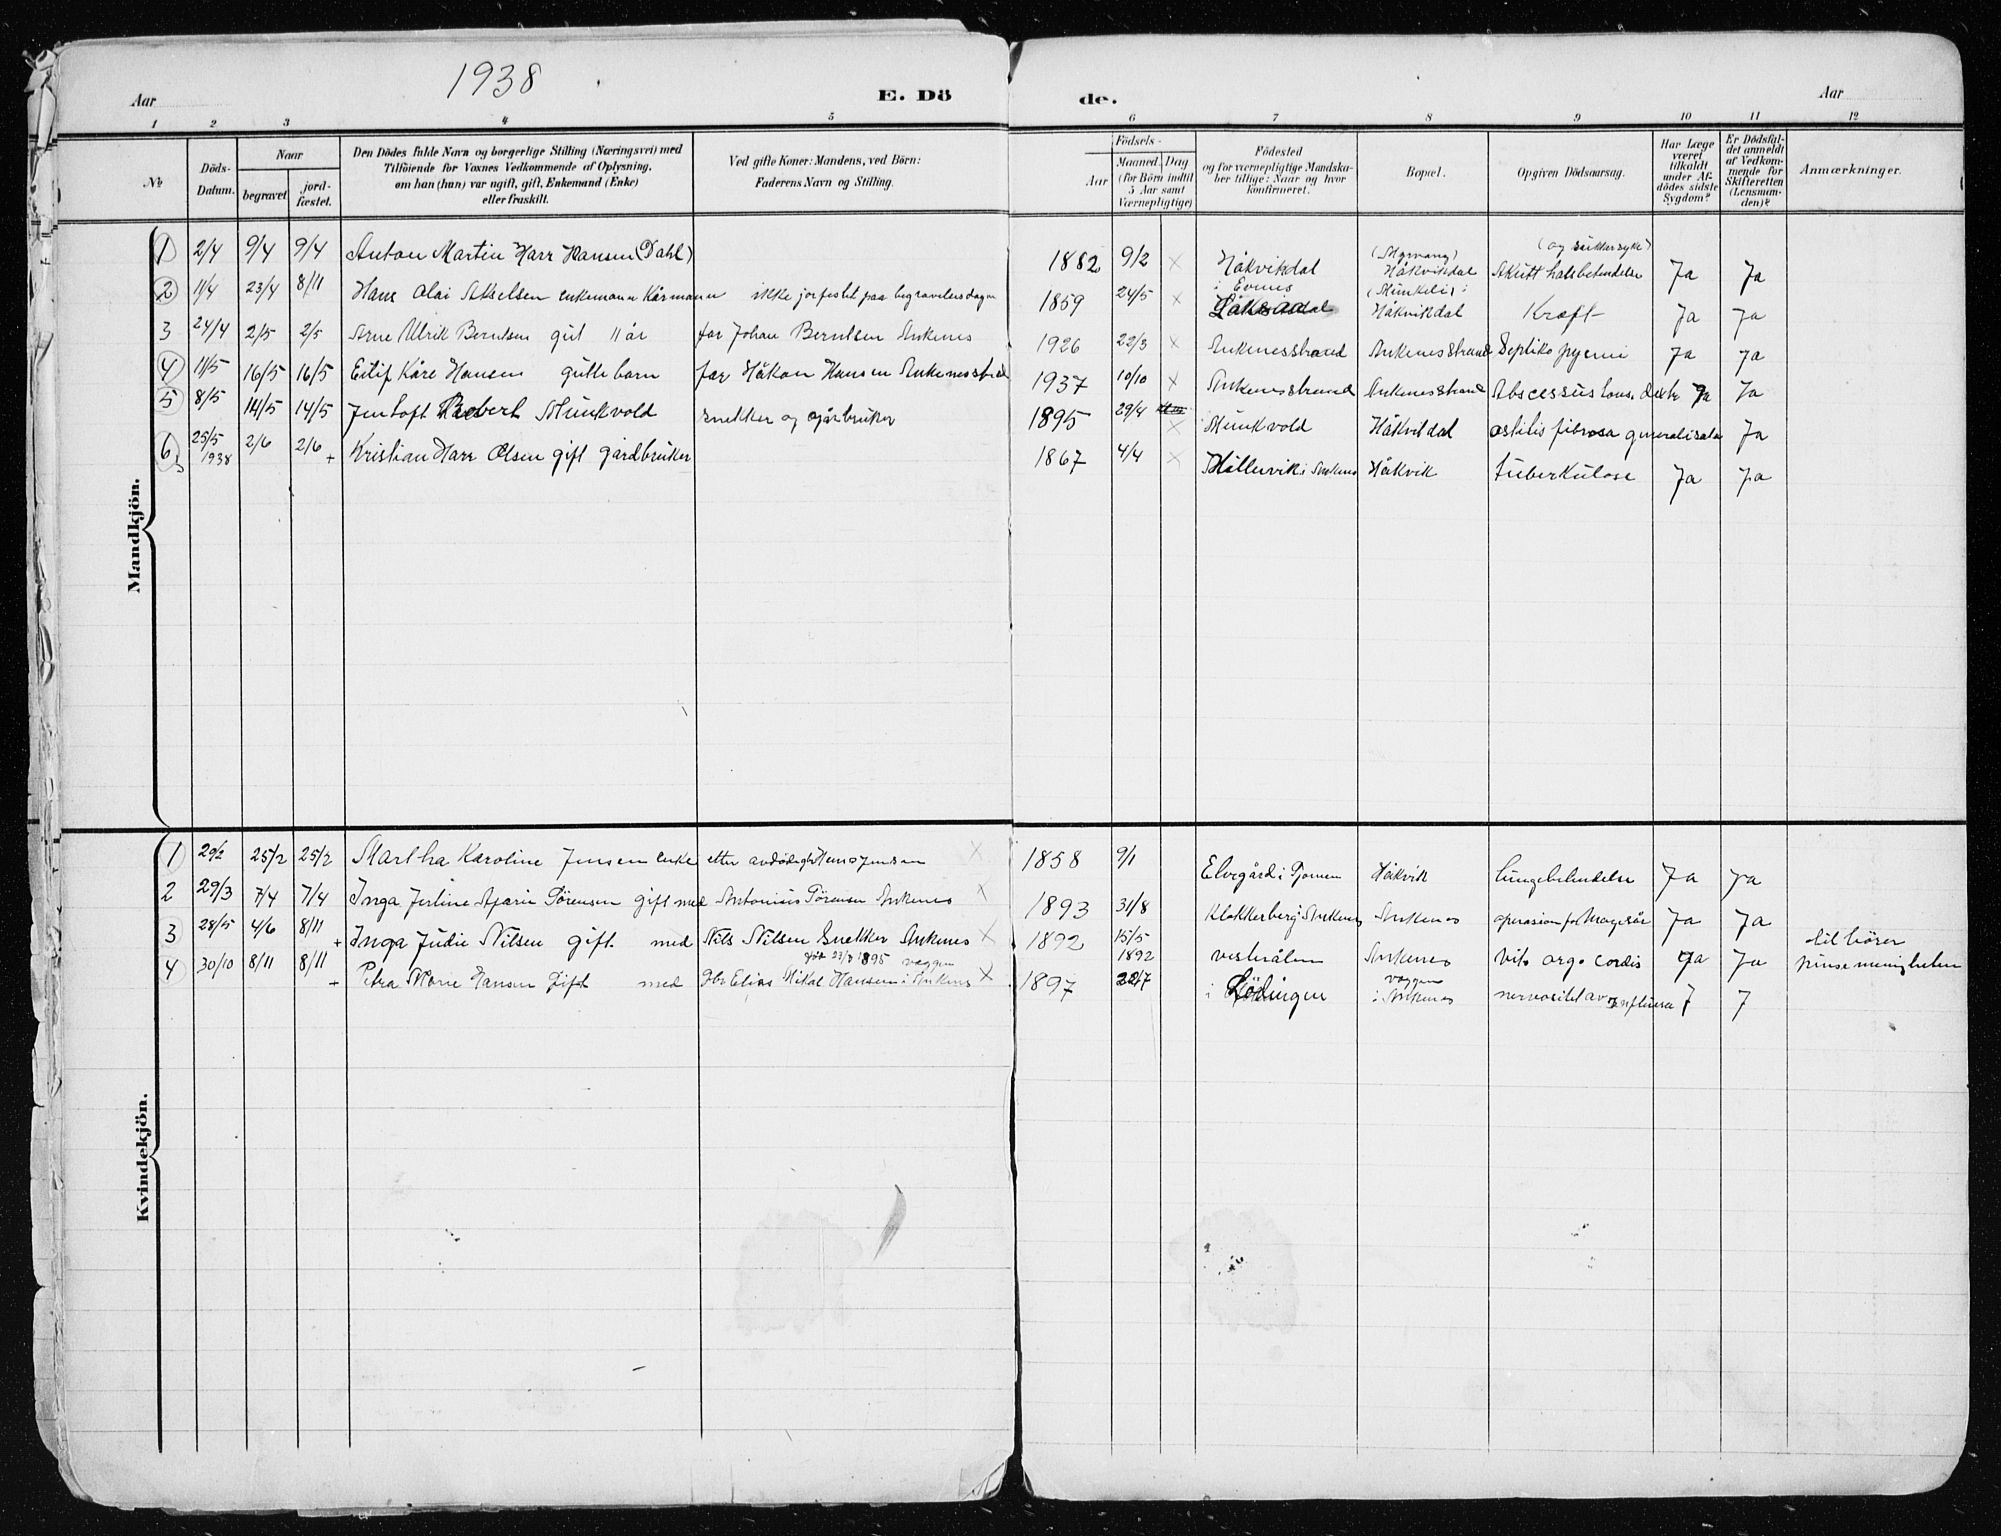 1938
Aar E. Dö de. Aar
1 2 3 4 5 6 7 8 9 10 11 12
No.
Döds-Datum.
Naar
begravet
jord-fæstet.
Den Dödes fulde Navn og borgerlige Stilling (Næringsvei) med
Tilföiende for Voxnes Vedkommende af Oplysning,
om han (hun) var ugift, gift, Enkemand (Enke)
eller fraskilt.
Ved gifte Koner: Mandens, ved Börn:
Faderens Navn og Stilling.
Födsels-
Aar
Maaned. Dag
(for Börn indtil
5 Aar samt
Værnepligtige)
Födested
og for værnepligtige Mandska-
ber tillige: Naar og hvor
konfirmeret.
Bopæl.
Opgiven Dödsaarsag.
Har Læge
været
tilkaldt
under Af-
dödes sidste
Sygdom?
Er Dödsfal-
det anmeldt
af Vedkom-
mende for
Skifteretten
(Lensman-
den)?
Anmærkninger.
Mandkjön.
1 2/4 9/4 9/4 Anton Martin Harr Hansen (Dahl) 1882 9/2 × Håkvikdal (Myrvang) Håkvikdal Akutt halsbetendelse (og sukkersyke) Ja Ja
2 11/4 23/4 8/11 Hans Olai Akselsen enkemann Kårmann ikke jorfestet paa begravelersdagen 1859 24/5 × i Evenes (Munkeli) Håkvikdal Kræft Ja Ja
3 24/4 2/5 2/5 Arne Ulrik Berntsen gut 11 år far Johan Berntsen Ankenes 1926 22/3 × Ankenesstrand Ankenesstrand Septiko pyemi Ja Ja
4 11/5 16/5 16/5 Eilif Kåre Hansen guttebarn far Håkon Hansen Ankenesstrd 1937 10/10 × Ankenesstrand Ankenesstrand Abscessus Ja Ja
5 8/5 14/5 14/5 Jentoft Robert Munkvold snekker og gårbruker 1895 29/4 × Munkvold Håkvikdal ostitis fibrosa generalisata Ja
6 25/5 1938 2/6 2/6 + Kristian Harr Olsen gift gårdbruker 1867 4/4 × i Ankenes Håkvik tuberkulose Ja Ja
Kvindekjön.
1 25/2 25/2 Martha Karoline Jensen enke etter avdöde Jensen × 1858 9/1 Elvegård i Håkvik lungebetendelse Ja Ja
2 29/3 7/4 7/4 Inga Sörensen gift med Antonius Sörensen Ankenes × 1893 31/8 Klokkerberg i Ankenes Ankenes operasion for Magesår Ja Ja
3 28/5 4/6 8/11 + Inga Judie Nilsen gift med Nils Nilsen Snekker Ankenes × 1892 15/5 1892 vesterålen Ankenes vit. org. cordis Ja Ja til hörer pinsemenigheten
4 30/10 8/11 8/11 + Petra Marie Hansen Gift med Elias Mikal Hansen i Ankenes × 1897 22/7 i Lödingen i Ankenes nervositet av 7 7